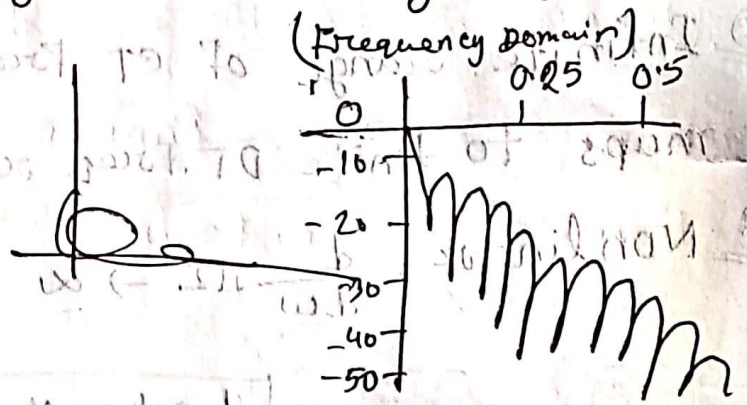 (Frequency Domain)
0.25 0.5
0
-10
-20
-30
-40
-50